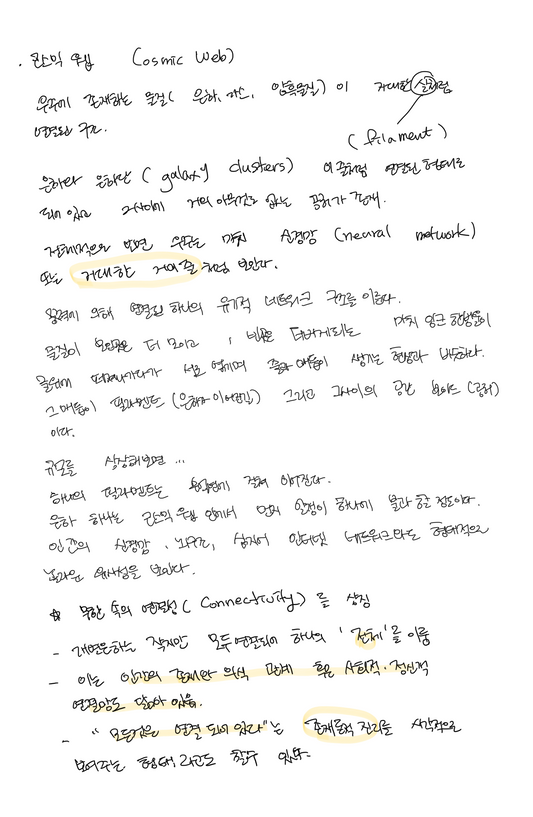 . 코스믹 웹 (Cosmic Web)
우주에 존재하는 물질( 은하, 가스, 암흑물질) 이 거대한 실처럼
연결된 구조.
( filament )
은하와 은하단 ( galaxy clusters) 이 줄처럼 연결된 형태로
되어 있고 그사이에 거의 아무것도 없는 공허가 존재.
전체적으로 보면 우주는 마치 신경망 (neural network)
또는 거대한 거미줄처럼 보인다.
중력에 의해 연결된 하나의 유기적 네트워크 구조를 이룬다.
물질이 모인곳은 더 모이고 , 비곳은 더비게되는 마치 잉크 한방울이
물위에 떠다니다가 서로 엮이며 줄과 매듭이 생기는 현상과 비슷하다.
그 매듭이 필라멘트 (은하가 이어진길) 그리고 그사이의 공간 보이드 (공허)
이다.
규모를 상상해보면 ...
하나의 필라멘트는 걸쳐 이어진다.
은하 하나는 코스믹 웹 안에서 먼지 알갱이 하나에 불과 할 정도이다.
인간의 신경망, 뇌구조, 심지어 인터넷 네트워크와도 형태적으로
놀라운 유사성을 보인다.
☆ 무한 속의 연결성 ( Connectivity ) 를 상징
- 개별은하는 작지만 모두 연결되어 하나의 '전체'를 이룸
- 이는 인간의 존재와 의식 관계 혹은 사회적·정신적
연결망도 닮아 있음.
- "모든것은 연결 되어 있다"는 존재론적 진리를 시각적으로
보여주는 형태라고도 할수 있다.